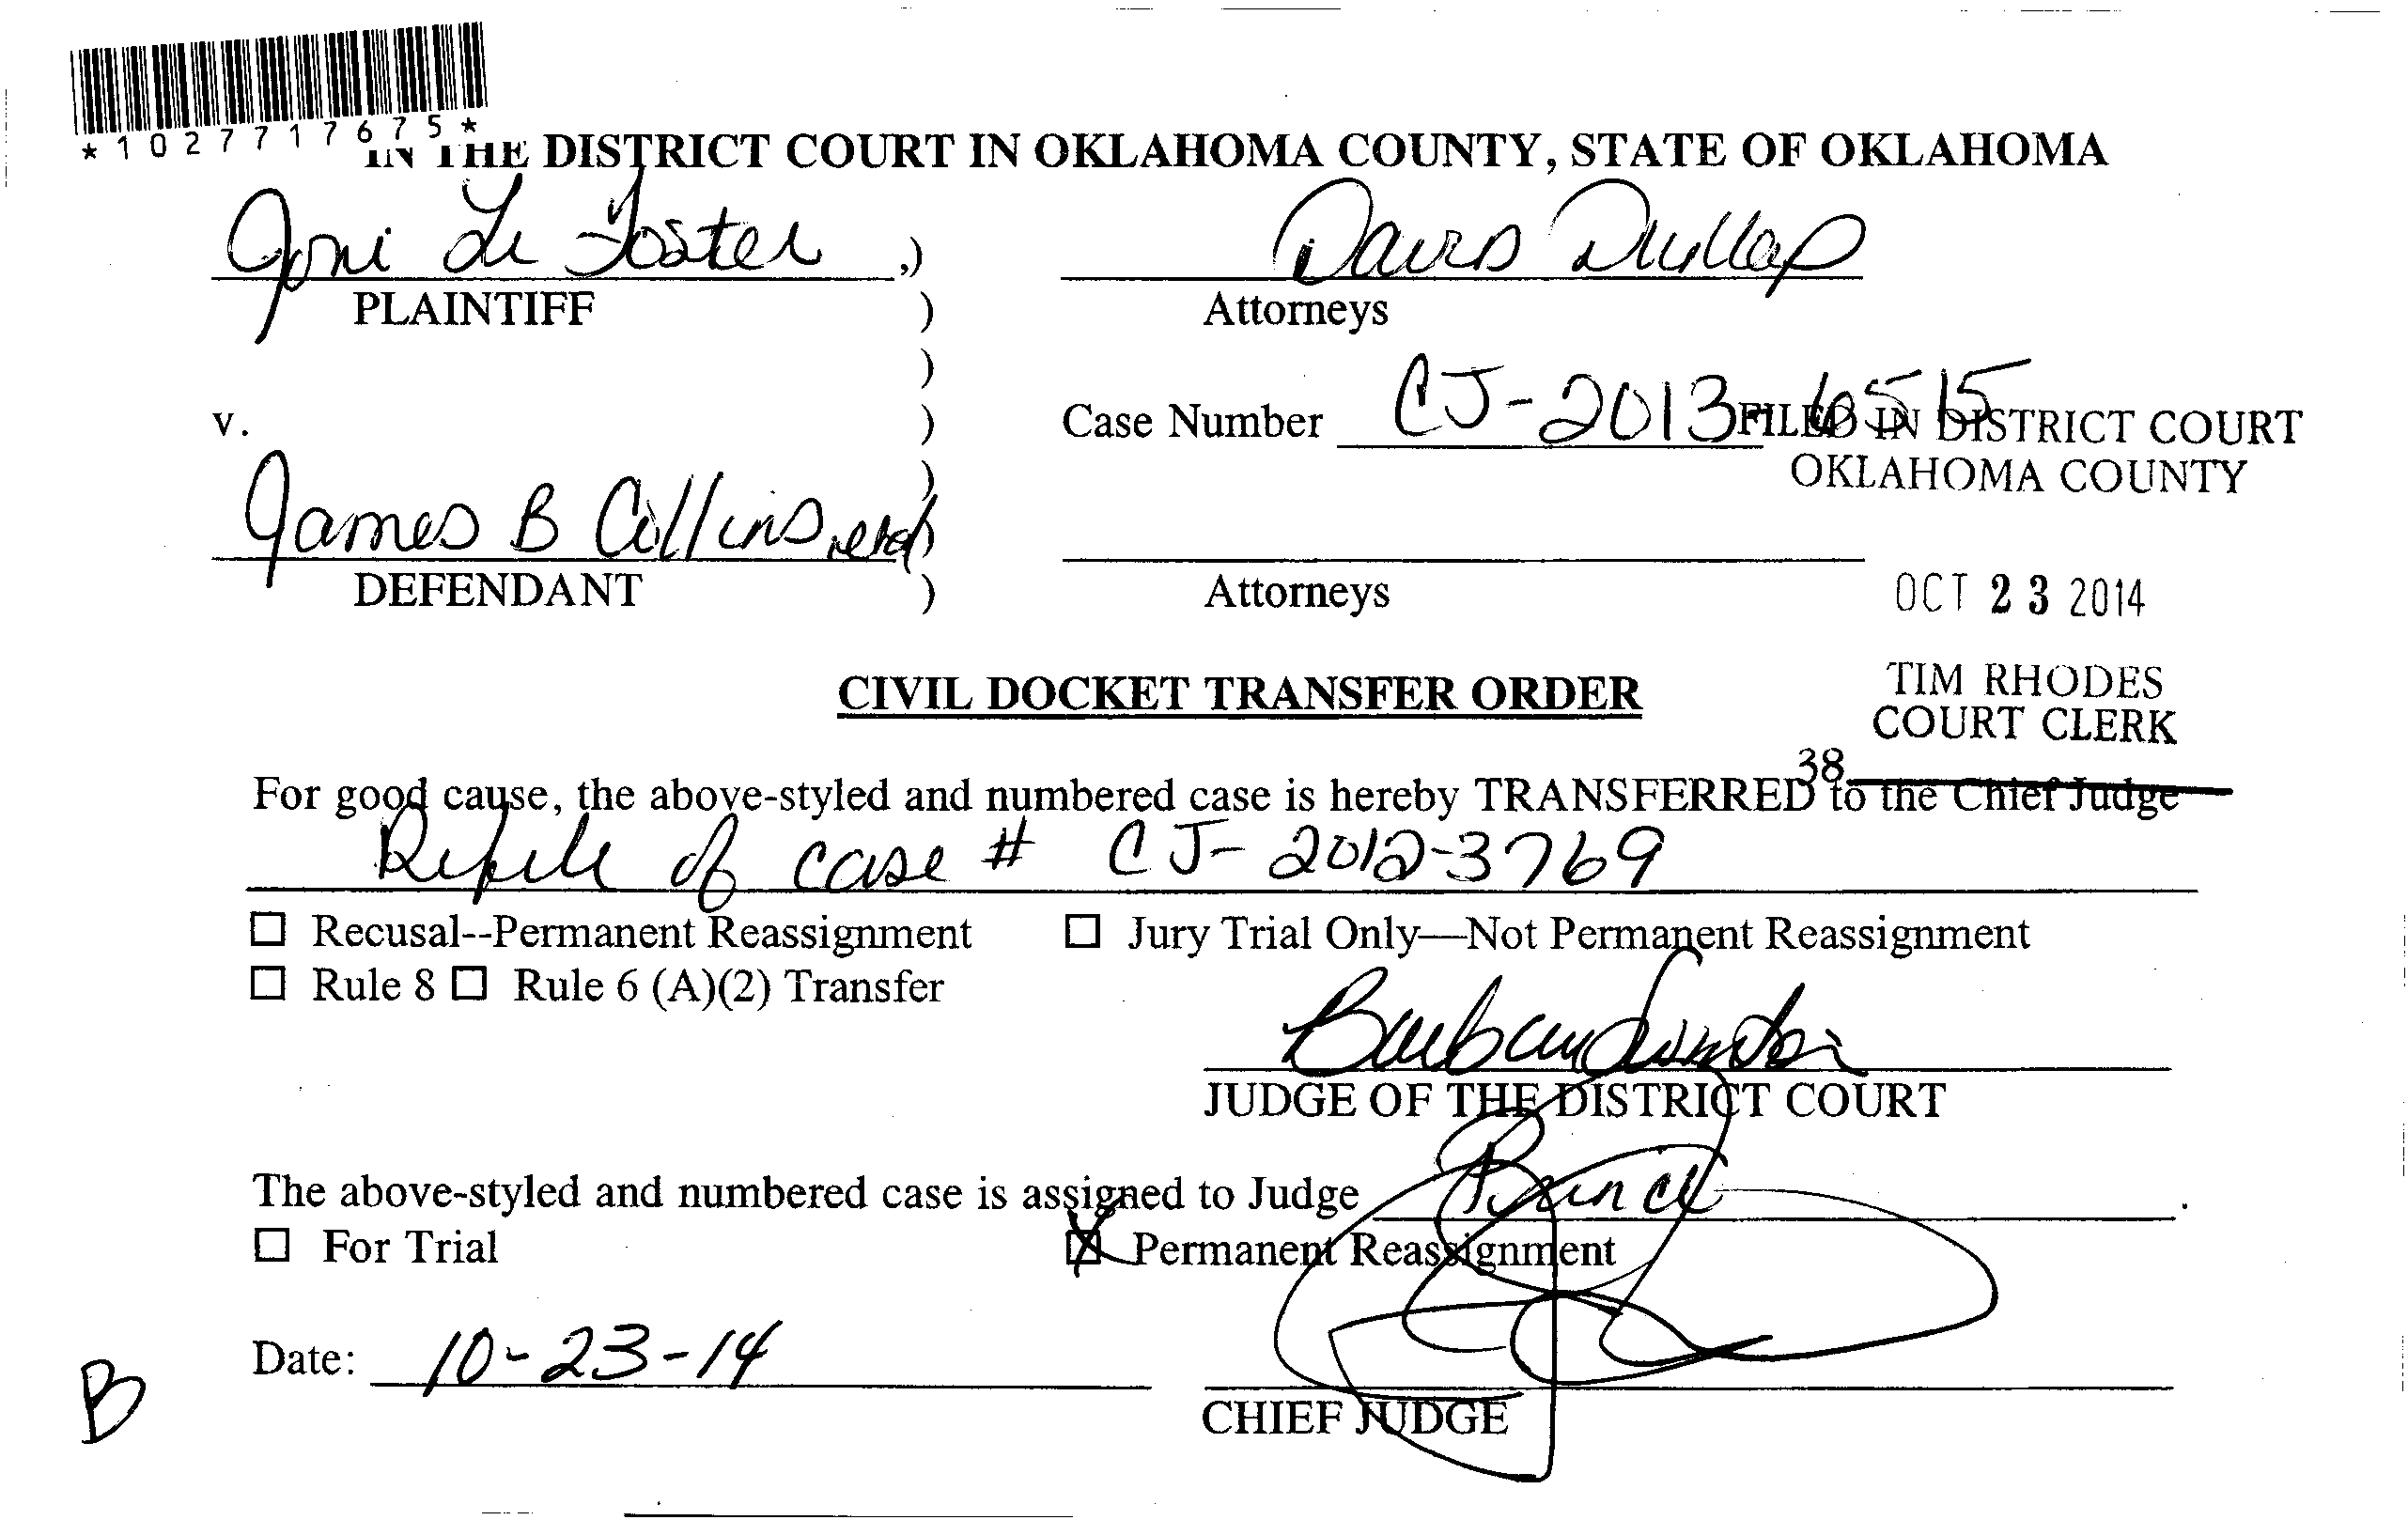 *1027717675*
IN THE DISTRICT COURT IN OKLAHOMA COUNTY, STATE OF OKLAHOMA
Joni Le Foster ,)
PLAINTIFF )
)
v. )
)
James B Collins, et al )
DEFENDANT )
Davis Dunlap
Attorneys
Case Number CJ-2013-6515
FILED IN DISTRICT COURT
OKLAHOMA COUNTY
Attorneys
OCT 23 2014
TIM RHODES
COURT CLERK
38
CIVIL DOCKET TRANSFER ORDER
For good cause, the above-styled and numbered case is hereby TRANSFERRED to the Chief Judge
Refile of case # CJ-2012-3769
☐ Recusal--Permanent Reassignment ☐ Jury Trial Only—Not Permanent Reassignment
☐ Rule 8 ☐ Rule 6 (A)(2) Transfer
JUDGE OF THE DISTRICT COURT
The above-styled and numbered case is assigned to Judge Prince.
☐ For Trial ☒ Permanent Reassignment
Date: 10-23-14
CHIEF JUDGE
B